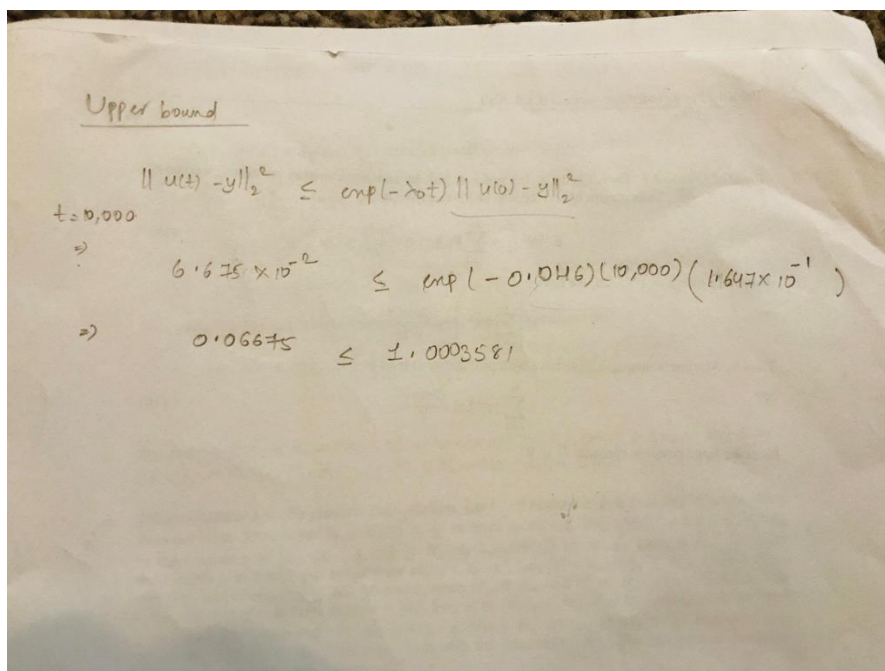 Upper bound
|| u(t) - y||₂² ≤ exp(-λ₀t) || u(0) - y||₂²
t=10,000
⇒
6.675 × 10⁻² ≤ exp(-0.046)(10,000)(1.647×10⁻¹)
⇒ 0.06675 ≤ 1.0003581